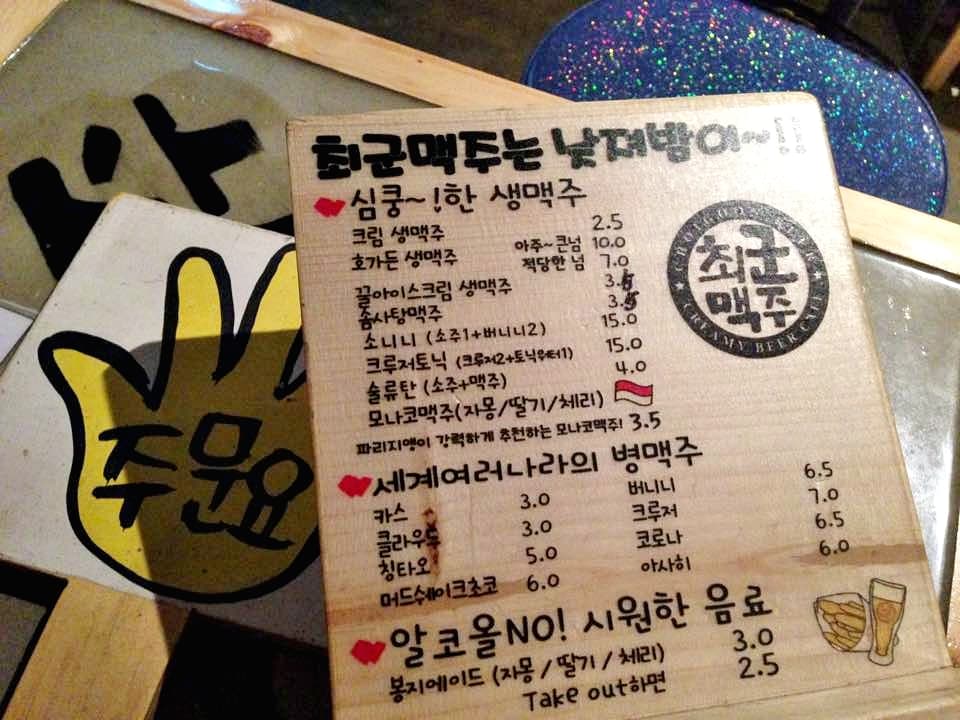 최군맥주는 낮져밤이~!!
심쿵~!한 생맥주
크림 생맥주 2.5
호가든 생맥주 아주~큰넘 10.0
적당한 넘 7.0
꿀아이스크림 생맥주 3.5
솜사탕맥주 3.5
소니니 (소주1+버니니2) 15.0
크루저토닉 (크루저2+토닉워터1) 15.0
술류탄 (소주+맥주) 4.0
모나코맥주(자몽/딸기/체리)
파리지앵이 강력하게 추천하는 모나코맥주! 3.5
세계여러나라의 병맥주
카스 3.0
클라우드 3.0
칭타오 5.0
머드쉐이크초코 6.0
버니니 6.5
크루저 7.0
코로나 6.5
아사히 6.0
알코올NO! 시원한 음료
봉지에이드 (자몽/딸기/체리) 3.0
Take out하면 2.5
최군
맥주
CREAMY BEER
주문요